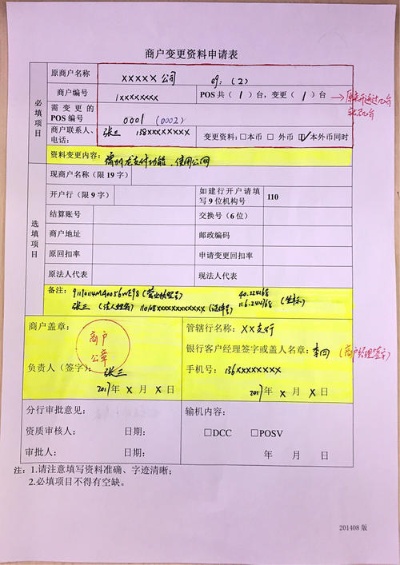 商户变更资料申请表
必填项目
原商户名称 XXXXX公司 (2)
商户编号 1XXXXXXXX POS共（1）台，变更（1）台
需变更的POS编号 0001 (0002)
商户联系人、电话： 张三 138XXXXXXXX 变更资料：□本币 □外币 ☑本外币同时
资料变更内容： 使用公网
选填项目
现商户名称（限19字）
开户行（限9字） 如建行开户请填写9位机构号 110
结算账号 交换号（6位）
商户地址 邮政编码
原回扣率 申请变更回扣率
原法人代表 现法人代表
备注：
张三
商户盖章： 商户公章
负责人（签字）： 张三
2017年X月X日
管辖行名称： XX支行
银行客户经理签字或盖人名章： 李四 (客户经理签字)
手机号： 136XXXXXXXX
2017年X月X日
分行审批意见： 输机内容：
资质审核人： 日期： □DCC □POSV
审批人： 日期： 日期：
注：1.请注意填写资料准确、字迹清晰；
2.必填项目不得有空缺。
201408版